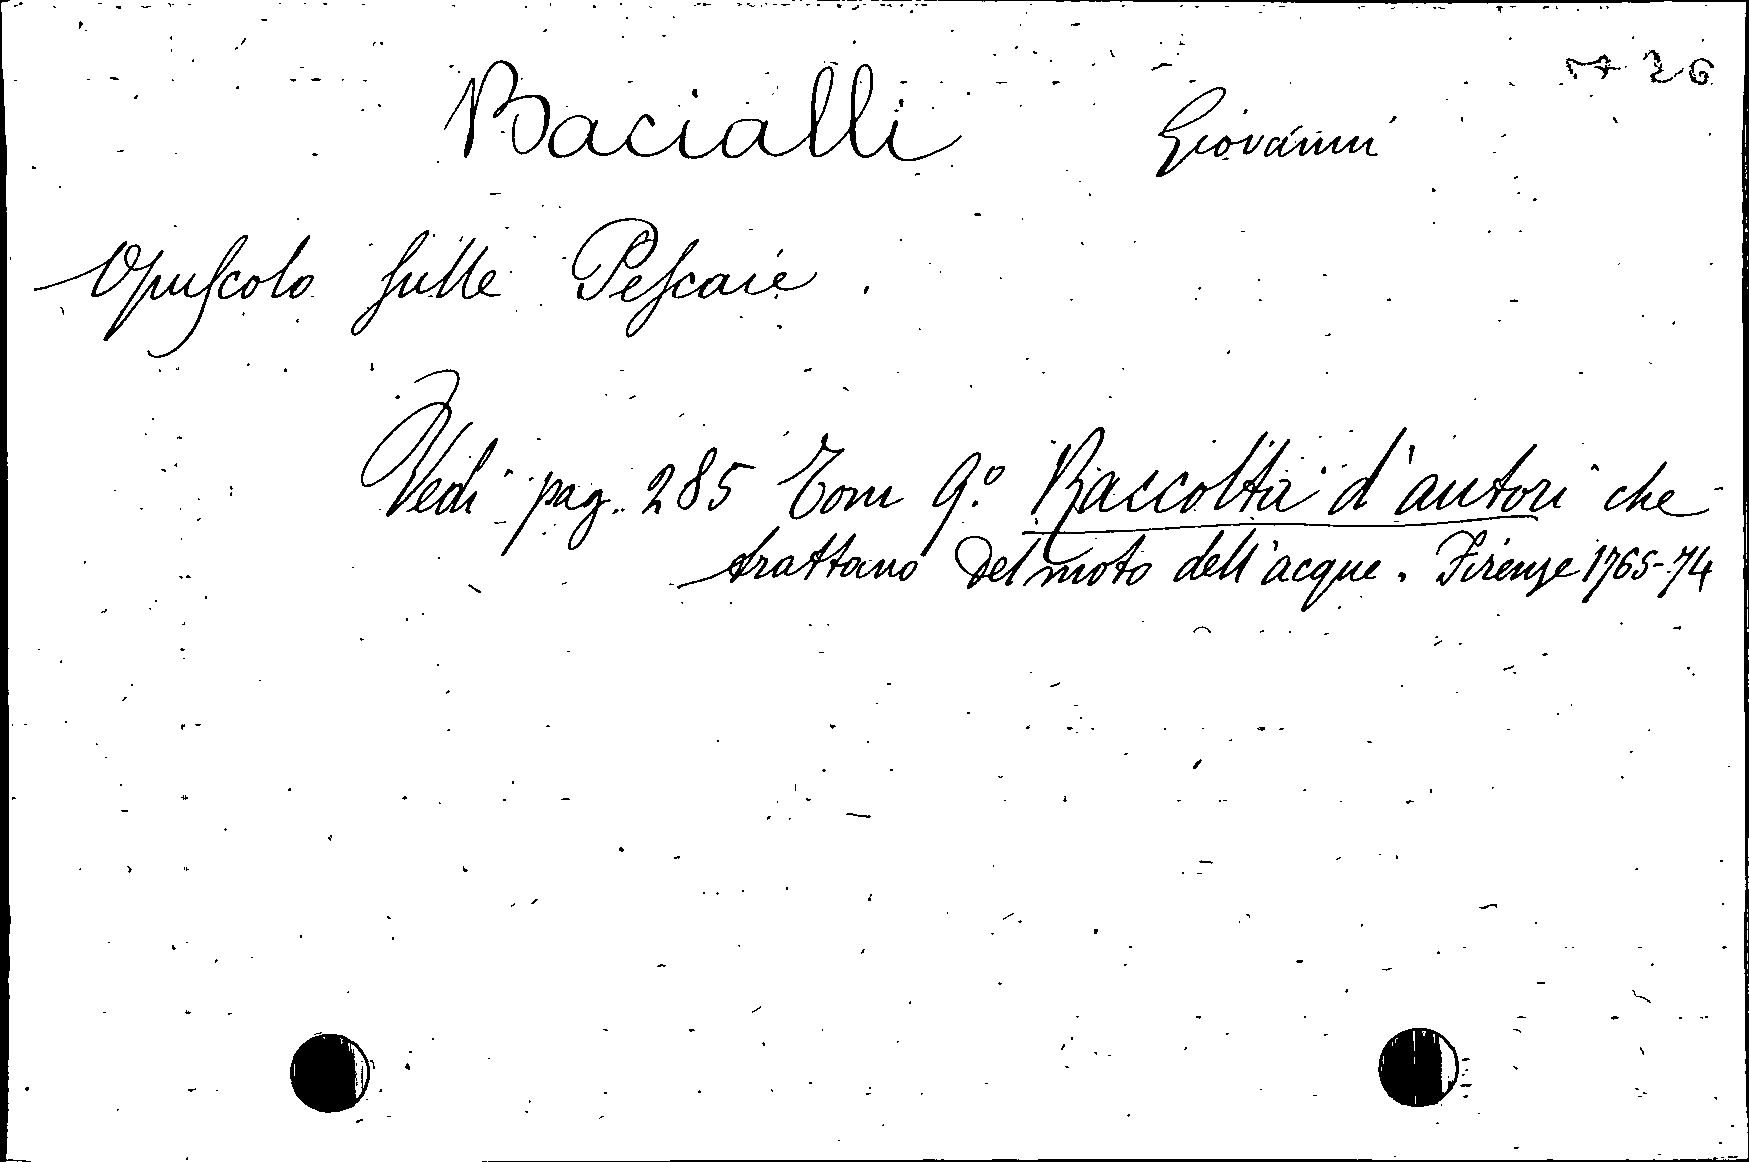 Bacialli Giovanni
Opuscolo sulle Pescaie.
Vedi pag. 285 Tom 9.° Raccolta d'autori che
trattano del moto dell'acque. Firenze 1765-74